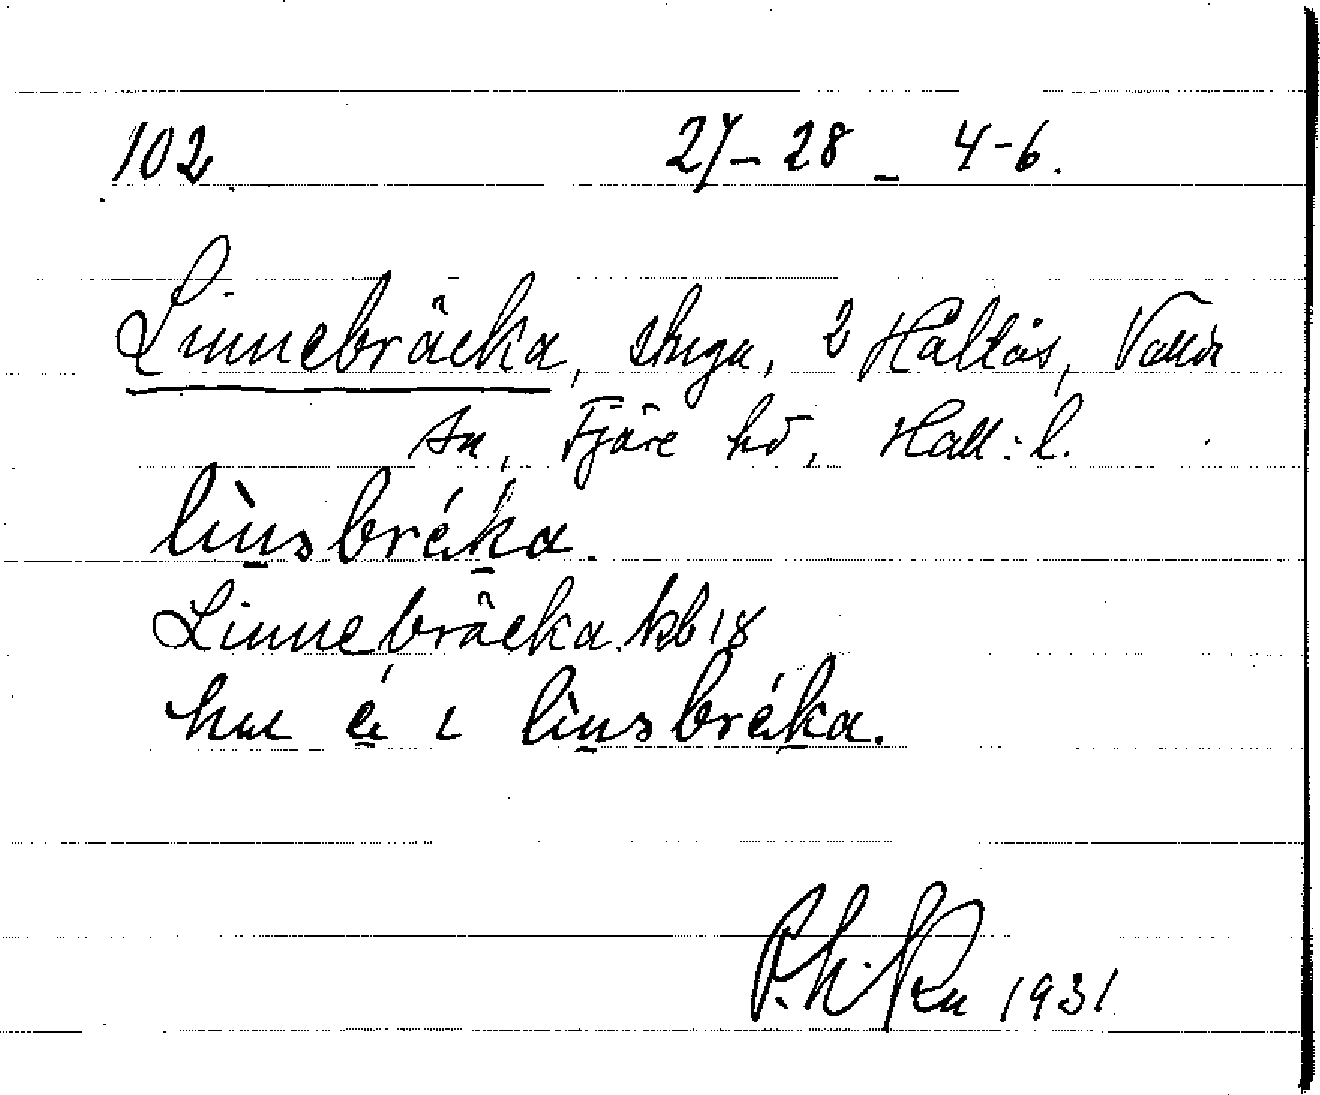 102 27-28 - 4-6.
Linnebräcka, stuga, 2 Hallås, Valla
sn, Fjäre hd, Hall:l.
lìnsbréka.
Linnebräcka kb 18
hu é ı lìnsbréka.
1931